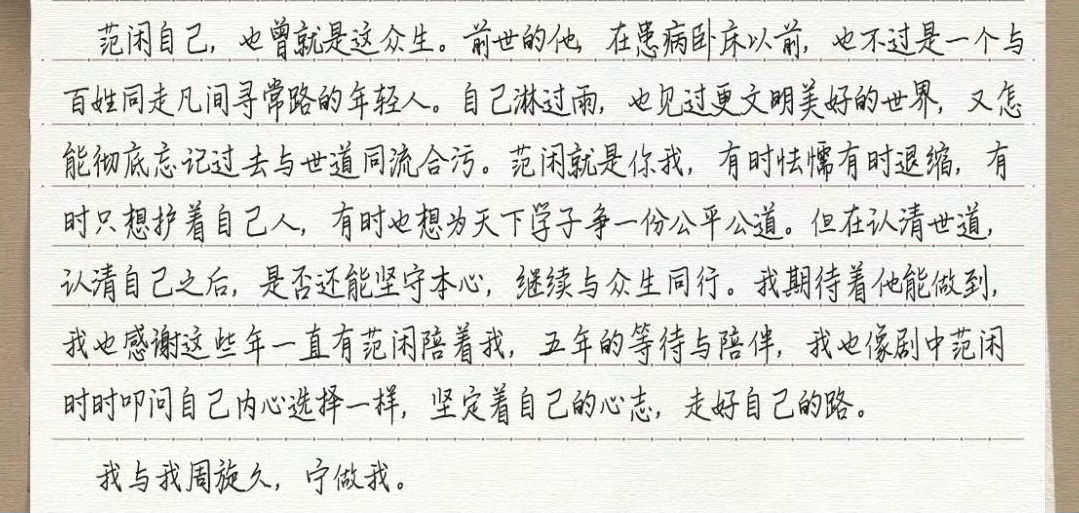 范闲自己，也曾就是这众生。前世的他，在患病卧床以前，也不过是一个与
百姓同走凡间寻常路的年轻人。自己淋过雨，也见过更文明美好的世界，又怎
能彻底忘记过去与世道同流合污。范闲就是你我，有时怯懦有时退缩，有
时只想护着自己人，有时也想为天下学子争一份公平公道。但在认清世道，
认清自己之后，是否还能坚守本心，继续与众生同行。我期待着他能做到，
我也感谢这些年一直有范闲陪着我，五年的等待与陪伴，我也像剧中范闲
时时叩问自己内心选择一样，坚定着自己的心志，走好自己的路。
我与我周旋久，宁做我。